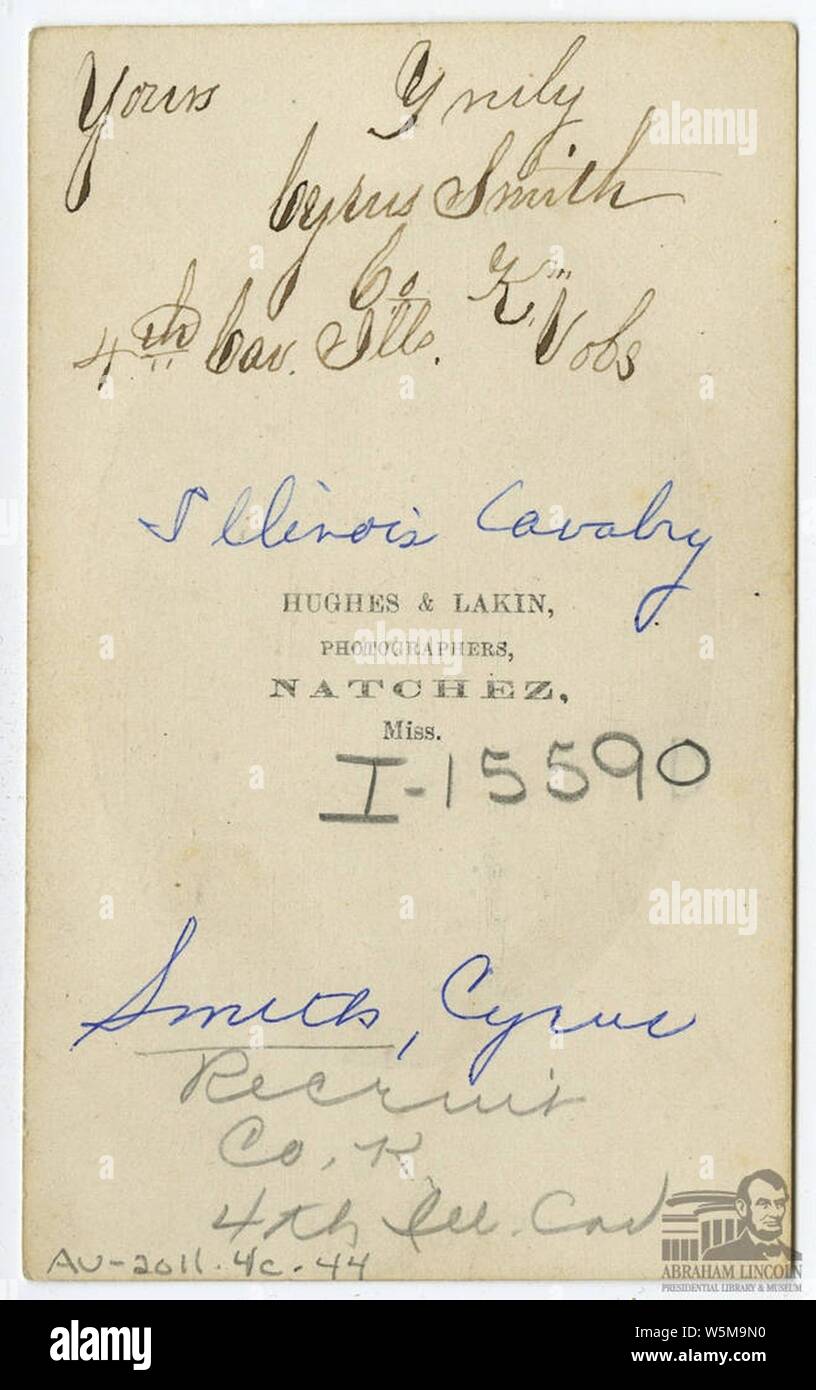 Yours Truly
Cyrus Smith
Co K
4th Cav. Ills. Vols
Illinois Cavalry
HUGHES & LAKIN,
PHOTOGRAPHERS,
NATCHEZ,
Miss.
I-15590
Smith, Cyrus
Recruit
Co. K
4th Ill. Cav
AV-2011.4c.44
ABRAHAM LINCOLN
PRESIDENTIAL LIBRARY & MUSEUM
alamy
alamy
alamy
Image ID: W5M9N0
www.alamy.com